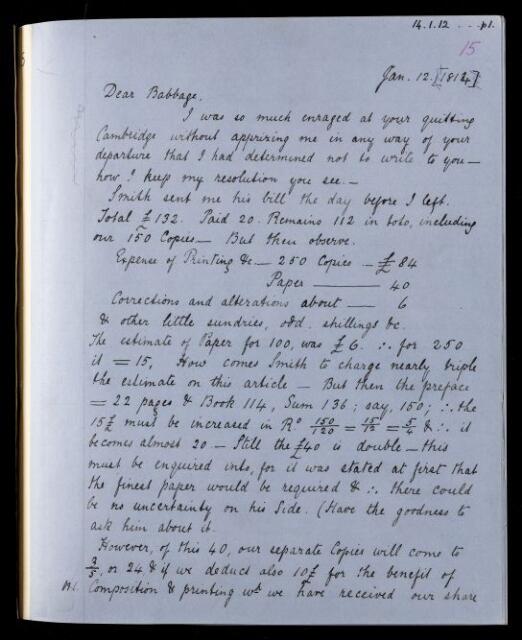 14.1.12 --- p1.
15
Jan. 12. [1814]
Dear Babbage,
I was so much enraged at your quitting
Cambridge without apprizing me in any way of your
departure that I had determined not to write to you —
how I keep my resolution you see. —
Smith sent me his bill the day before I left.
Total £132. Paid 20. Remains 112 in toto, including
our 150 Copies — But then observe.
Expense of Printing &c — 250 Copies — £84
Paper ——— 40
Corrections and alterations about — 6
& other little sundries, odd. shillings &c.
The estimate of Paper for 100, was £6. ∴ for 250
it = 15, How comes Smith to charge nearly triple
the estimate on this article — But then the preface
= 22 pages & Book 114, Sum 136; say, 150; ∴ the
15£ must be increased in R° 150/120 = 15/12 = 5/4 & ∴ it
becomes almost 20 — Still the £40 is double — this
must be enquired into, for it was stated at first that
the finest paper would be required & ∴ there could
be no uncertainty on his Side. (Have the goodness to
ask him about it.
However, of this 40, our separate Copies will come to
3/5, or 24 & if we deduct also 10£ for the benefit of
Composition & printing wd we have received our share